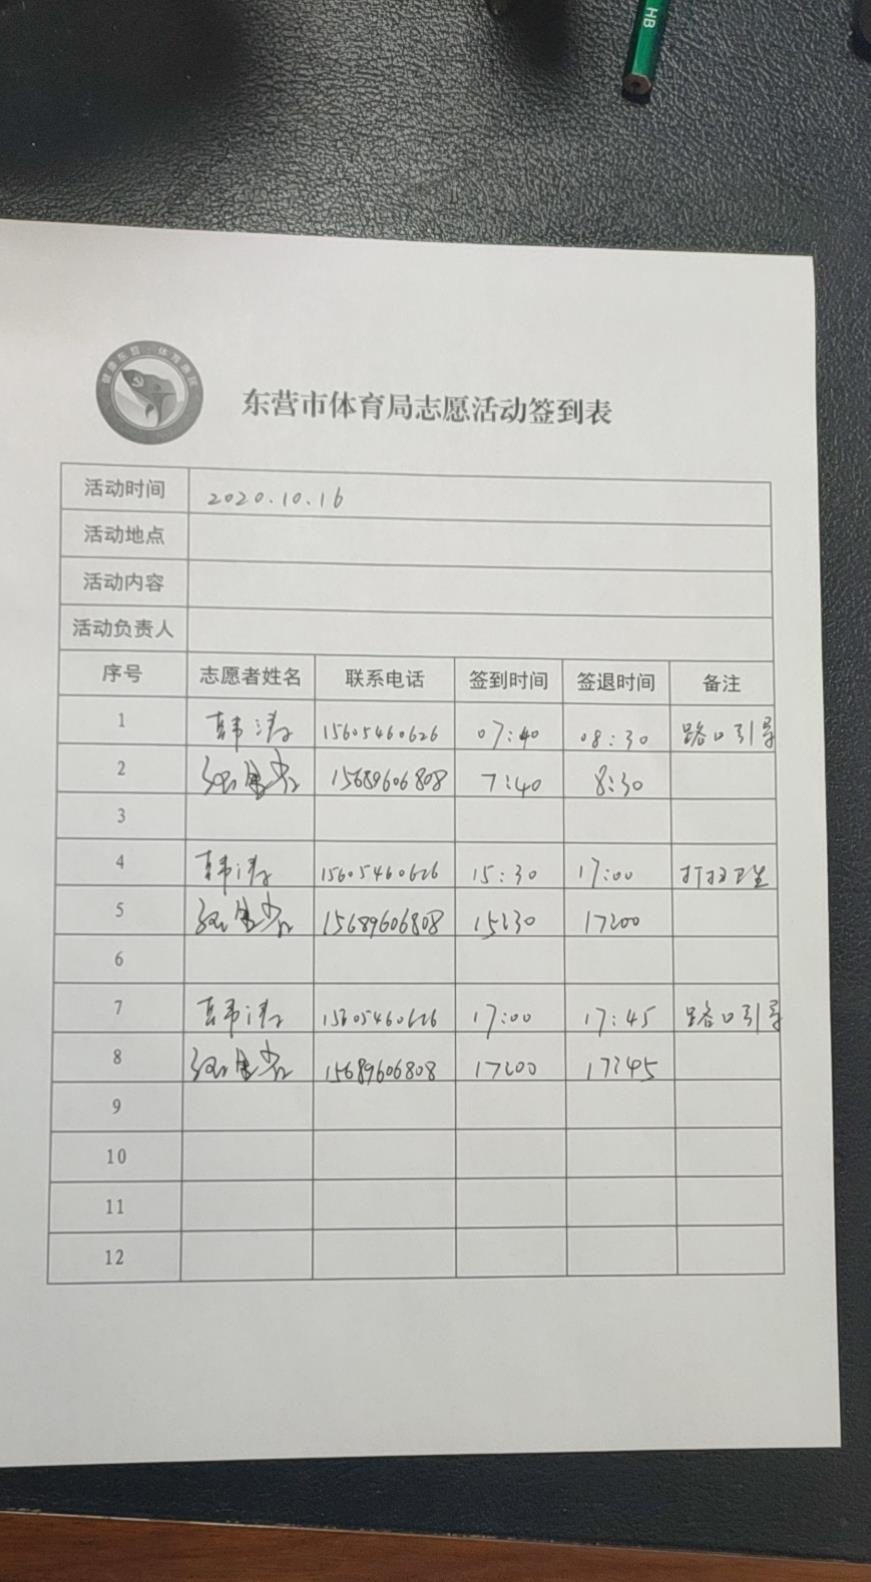 HB
东营市体育局志愿活动签到表
活动时间 2020.10.16
活动地点
活动内容
活动负责人
序号 志愿者姓名 联系电话 签到时间 签退时间 备注
1 韩涛 15605460626 07:40 08:30 路口引导
2 15689606808 7:40 8:30
3
4 韩涛 15605460626 15:30 17:00 打扫卫生
5 15689606808 15:30 17:00
6
7 韩涛 15605460626 17:00 17:45 路口引导
8 15689606808 17:00 17:45
9
10
11
12